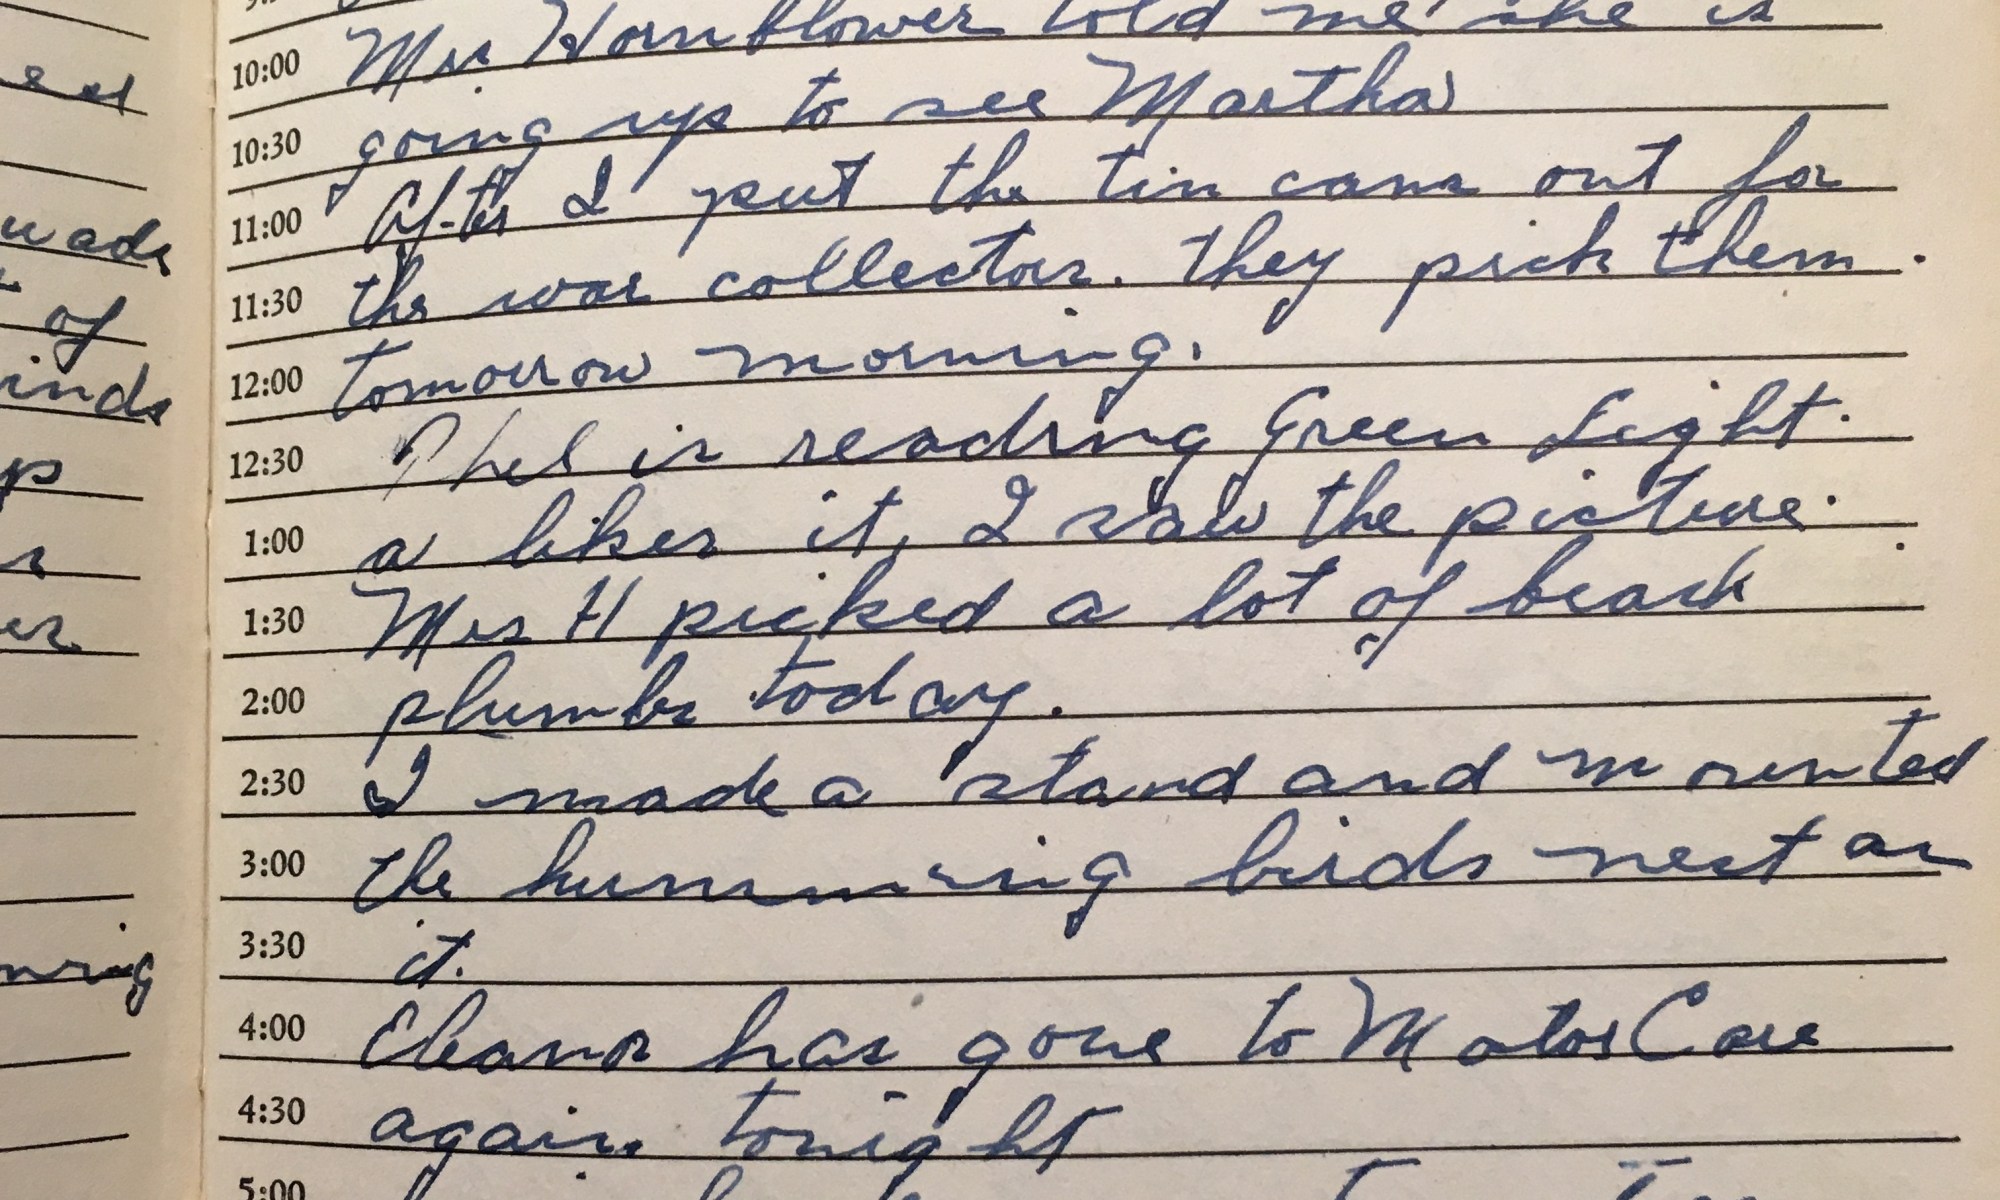 10:00 Mrs Hornblower told me she is
10:30 going up to see Martha
11:00 After I put the tin cans out for
11:30 the war collectors. They pick them
12:00 tomorrow morning.
12:30 Phel is reading Green Light.
1:00 a likes it, I saw the picture.
1:30 Mrs H picked a lot of beach
2:00 plumbs today.
2:30 I made a stand and mounted
3:00 the humming birds nest on
3:30 it.
4:00 Eleanor has gone to Motor Care
4:30 again tonight
5:00